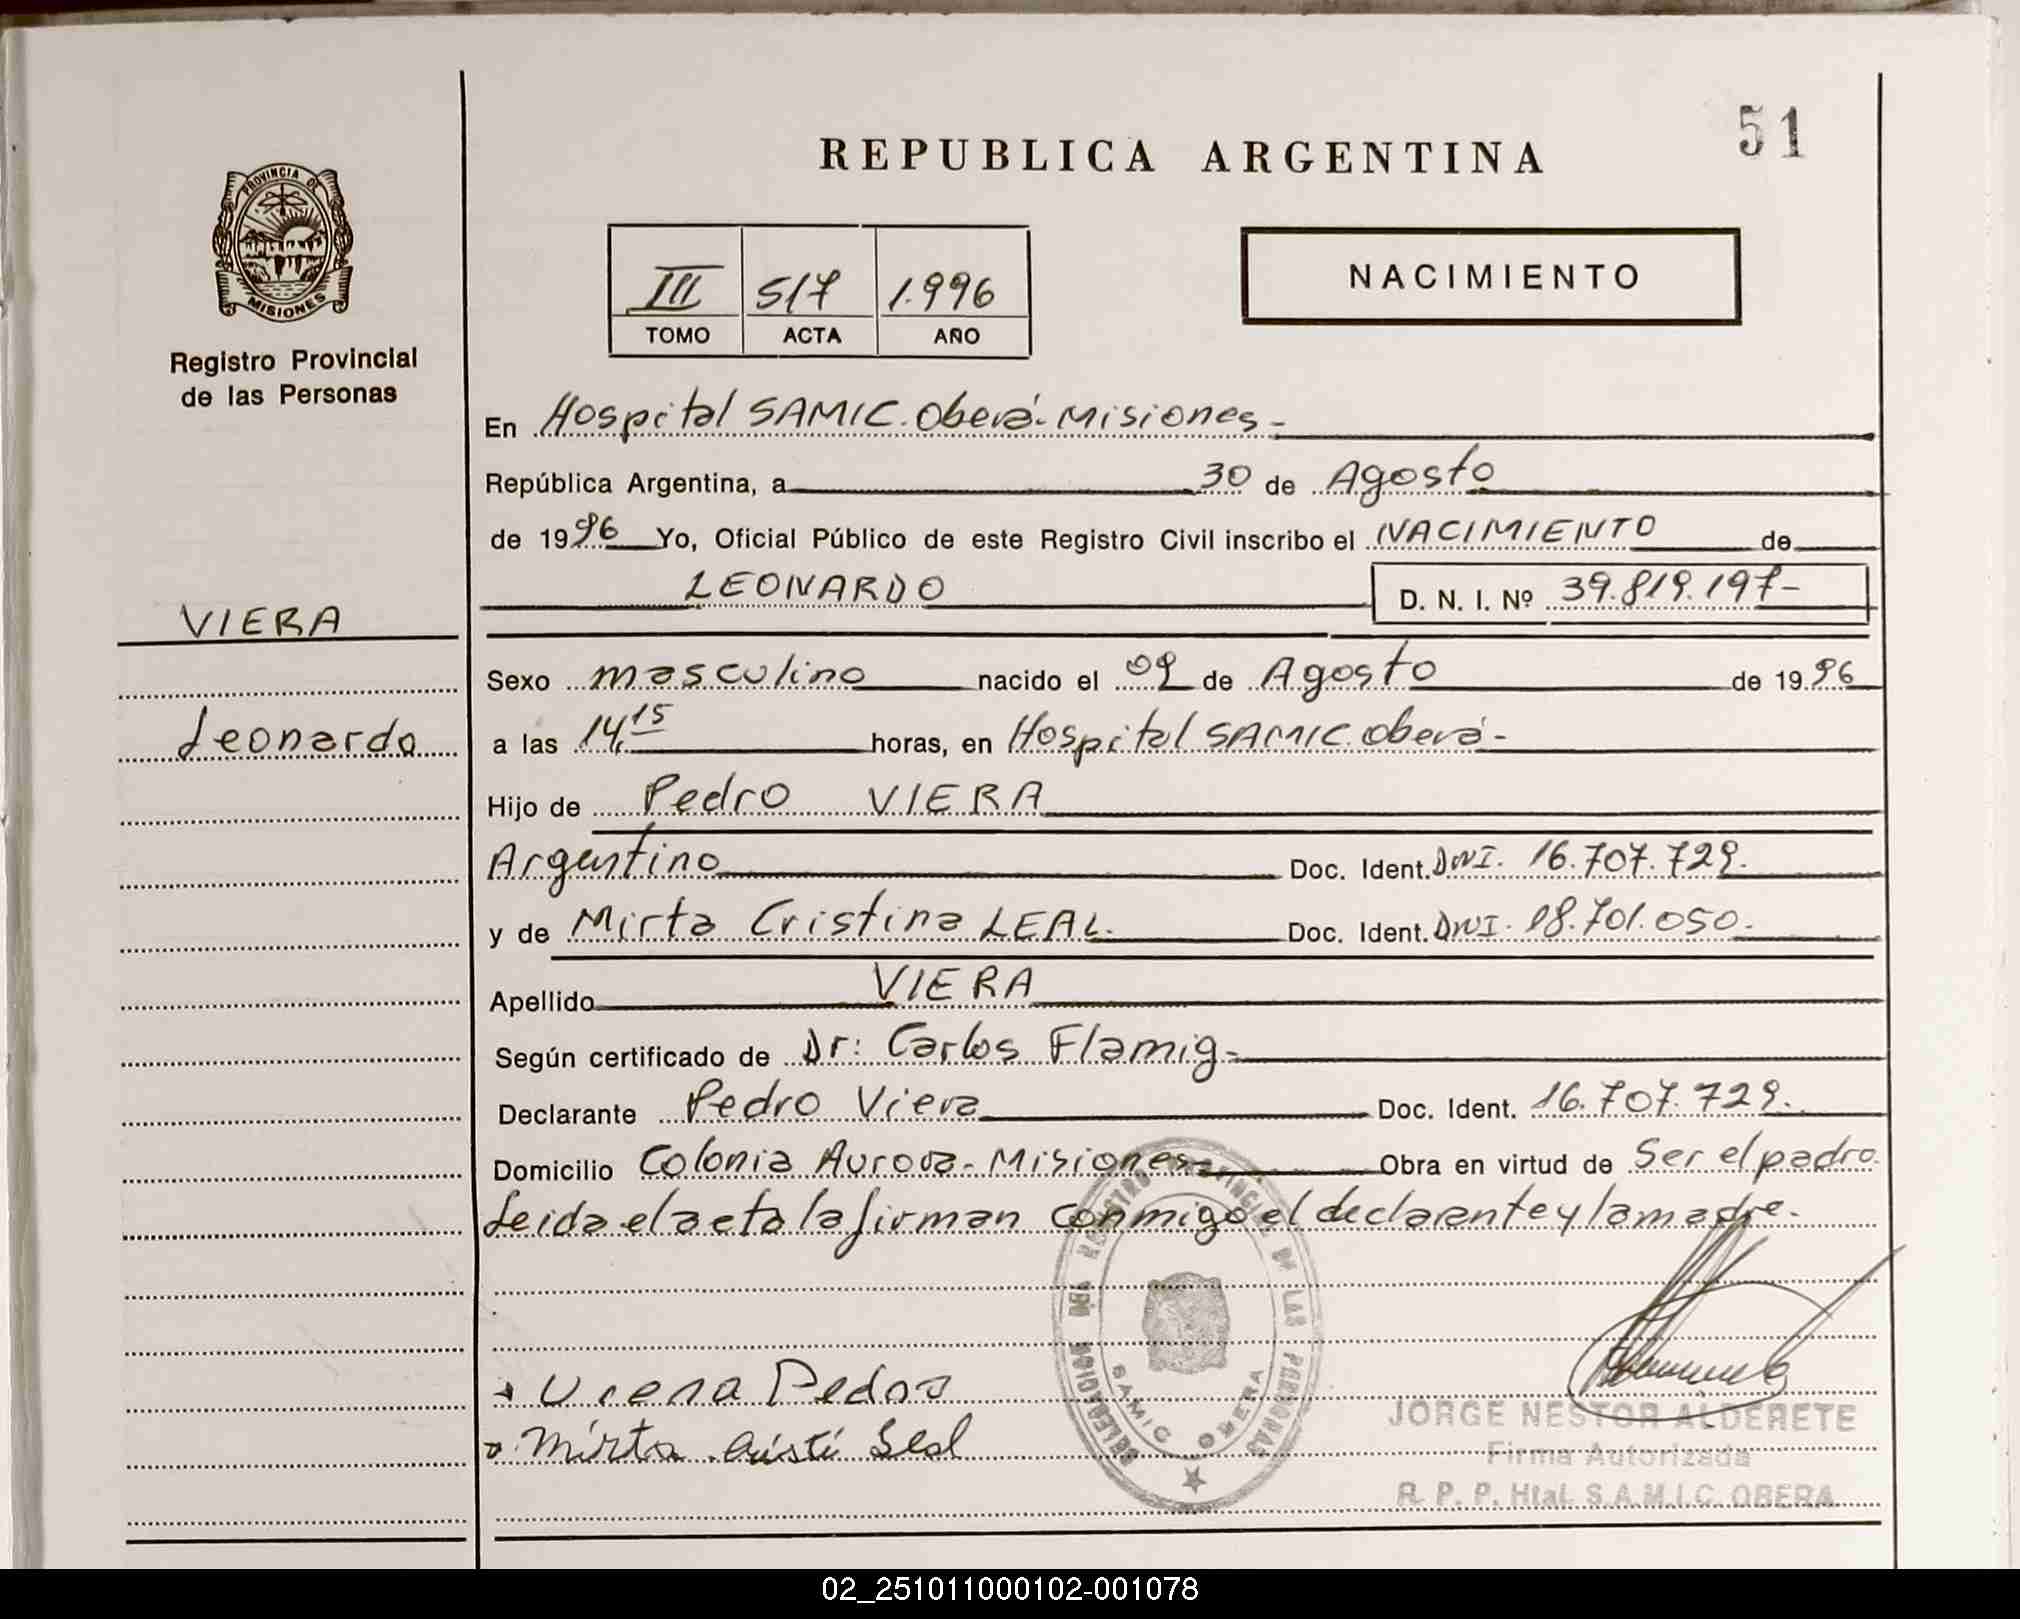 51
REPUBLICA ARGENTINA
PROVINCIA DE
MISIONES
Registro Provincial
de las Personas
III 517 1.996
TOMO ACTA AÑO
NACIMIENTO
En Hospital SAMIC. Oberá- Misiones-
República Argentina, a 30 de Agosto
de 1996 Yo, Oficial Público de este Registro Civil inscribo el NACIMIENTO de
LEONARDO D. N. I. Nº 39.819.197-
VIERA
Sexo masculino nacido el 09 de Agosto de 1996
Leonardo
a las 14 15 horas, en Hospital SAMIC. Oberá-
Hijo de Pedro VIERA
Argentino Doc. Ident. DNI. 16.707.729.
y de Mirta Cristina LEAL. Doc. Ident. DNI. 18.701.050.
Apellido VIERA
Según certificado de Dr: Carlos Flamig-
Declarante Pedro Viera Doc. Ident. 16.707.729.
Domicilio Colonia Aurora- Misiones- Obra en virtud de Ser el padre.
Leida el acta la firman conmigo el declarante y la madre.
REGISTRO PROVINCIAL DE LAS PERSONAS
SAMIC OBERA
Mirta Leal
JORGE NESTOR ALDERETE
Firma Autorizada
R. P. P. Htal. S.A.M.I.C. OBERA
02_251011000102-001078